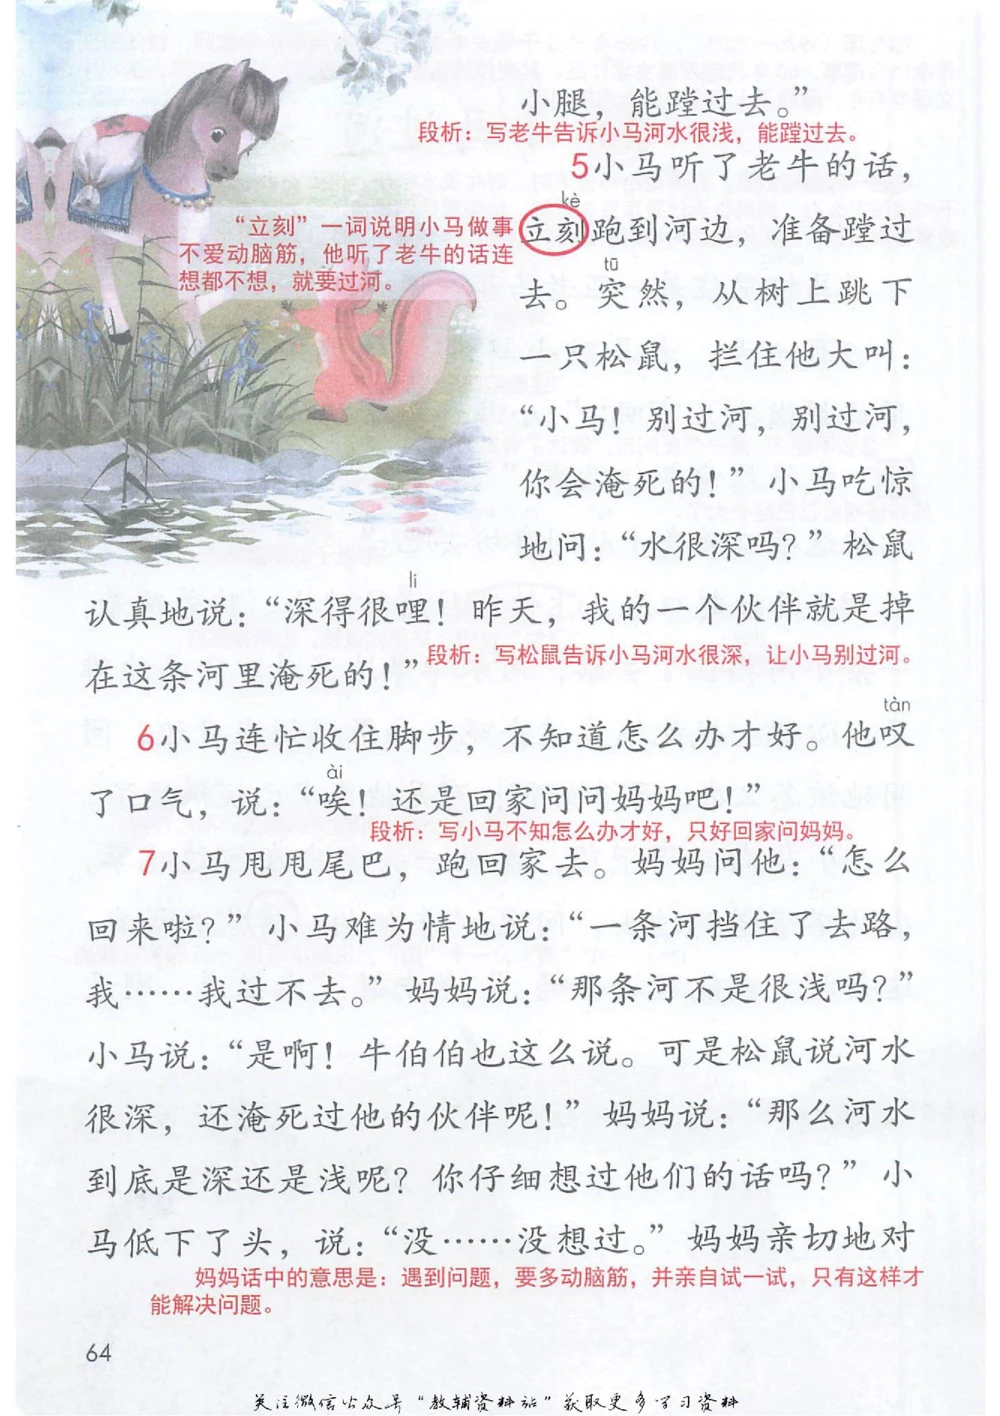 小腿，能蹚过去。”
段析：写老牛告诉小马河水很浅，能蹚过去。
5小马听了老牛的话，
kè
“立刻”一词说明小马做事
不爱动脑筋，他听了老牛的话连
想都不想，就要过河。
立刻跑到河边，准备蹚过
tū
去。突然，从树上跳下
一只松鼠，拦住他大叫：
“小马！别过河，别过河，
你会淹死的！”小马吃惊
地问：“水很深吗？”松鼠
li
认真地说：“深得很哩！昨天，我的一个伙伴就是掉
在这条河里淹死的！”
段析：写松鼠告诉小马河水很深，让小马别过河。
tàn
6小马连忙收住脚步，不知道怎么办才好。他叹
ài
了口气，说：“唉！还是回家问问妈妈吧！”
段析：写小马不知怎么办才好，只好回家问妈妈。
7小马甩甩尾巴，跑回家去。妈妈问他：“怎么
回来啦？”小马难为情地说：“一条河挡住了去路，
我……我过不去。”妈妈说：“那条河不是很浅吗？”
小马说：“是啊！牛伯伯也这么说。可是松鼠说河水
很深，还淹死过他的伙伴呢！”妈妈说：“那么河水
到底是深还是浅呢？你仔细想过他们的话吗？”小
马低下了头，说：“没……没想过。”妈妈亲切地对
妈妈话中的意思是：遇到问题，要多动脑筋，并亲自试一试，只有这样才
能解决问题。
64
关注微信公众号“教辅资料站”获取更多学习资料